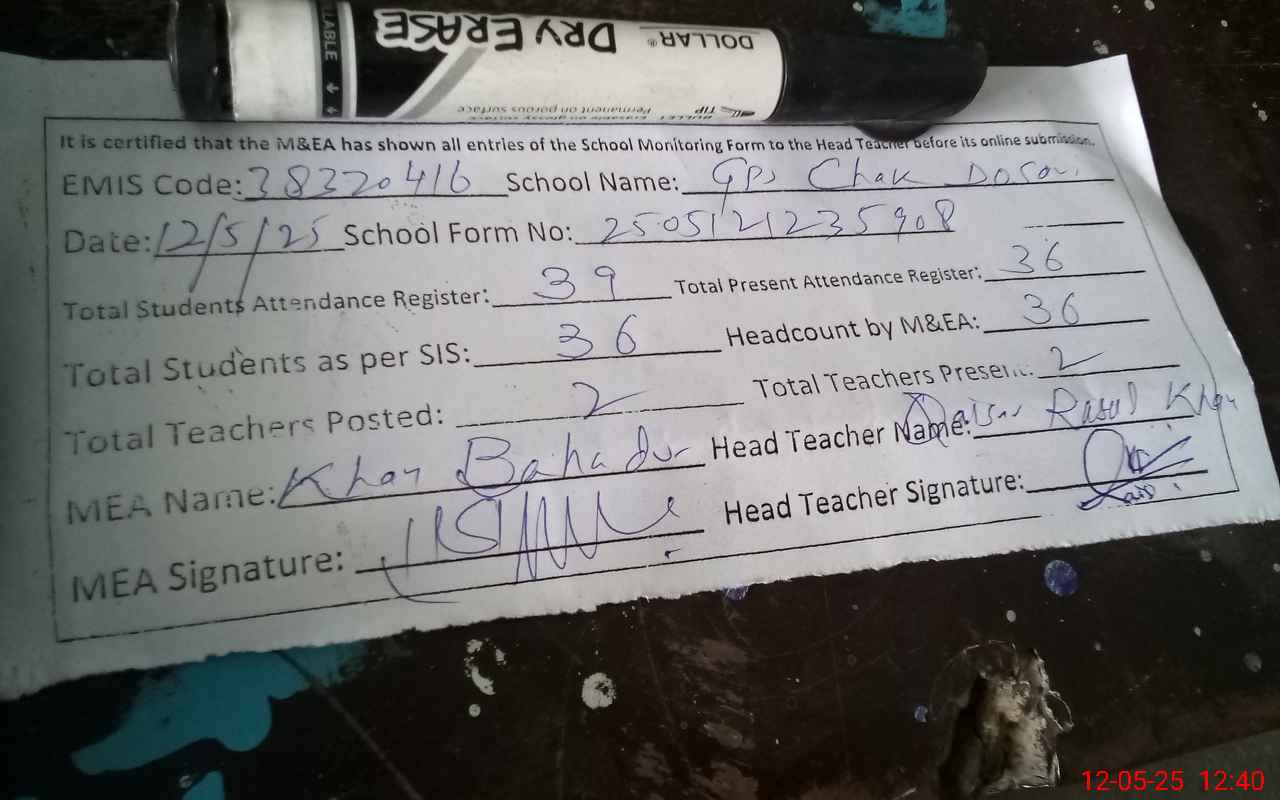 LLABLE
DOLLAR® DRY ERASE
BULLET TIP
Permanent on porous surface
It is certified that the M&EA has shown all entries of the School Monitoring Form to the Head Teacher before its online submission.
EMIS Code: 38320416 School Name: GPS Chak
Date: 12/5/25 School Form No: 2505121235908
Total Students Attendance Register: 39 Total Present Attendance Register: 36
Total Students as per SIS: 36 Headcount by M&EA: 36
Total Teachers Posted: 2 Total Teachers Present: 2
MEA Name: Khan Bahadur Head Teacher Name: Qaisar Rasul Khan
MEA Signature: Head Teacher Signature:
12-05-25 12:40